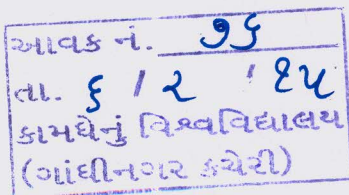 આવક નં. ૭૬
તા. ૬ / ૨ / ૧૫
કામધેનું વિશ્વવિદ્યાલય
(ગાંધીનગર કચેરી)